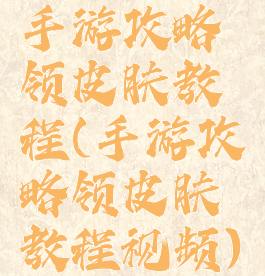 手游攻略
领皮肤教
程(手游攻
略领皮肤
教程视频)